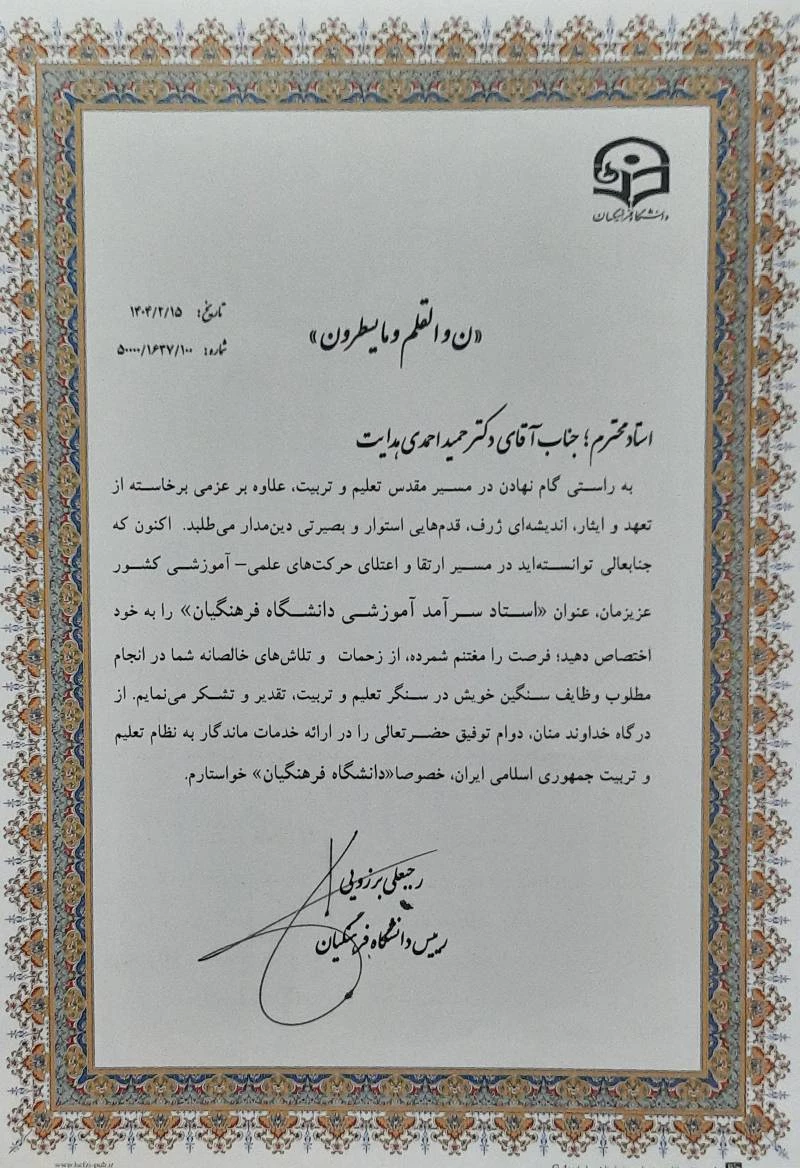 دانشگاه فرهنگیان
تاریخ: ۱۴۰۴/۲/۱۵
شماره: ۵۰۰۰۰/۱۶۳۷/۱۰۰
«ن والقلم و مایسطرون»
استاد محترم؛ جناب آقای دکتر حمید احمدی هدایت
به راستی گام نهادن در مسیر مقدس تعلیم و تربیت، علاوه بر عزمی برخاسته از
تعهد و ایثار، اندیشه‌ای ژرف، قدم‌هایی استوار و بصیرتی دین‌مدار می‌طلبد. اکنون که
جنابعالی توانسته‌اید در مسیر ارتقا و اعتلای حرکت‌های علمی– آموزشی کشور
عزیزمان، عنوان «استاد سرآمد آموزشی دانشگاه فرهنگیان» را به خود
اختصاص دهید؛ فرصت را مغتنم شمرده، از زحمات و تلاش‌های خالصانه شما در انجام
مطلوب وظایف سنگین خویش در سنگر تعلیم و تربیت، تقدیر و تشکر می‌نمایم. از
درگاه خداوند منان، دوام توفیق حضرتعالی را در ارائه خدمات ماندگار به نظام تعلیم
و تربیت جمهوری اسلامی ایران، خصوصا«دانشگاه فرهنگیان» خواستارم.
رجبعلی برزویی
رییس دانشگاه فرهنگیان